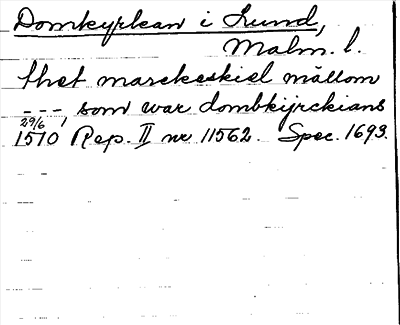 Domkyrkan i Lund,
Malm. l.
thet marckeskiel mällom
---, som war dombkijrckians
29/6 1510 Rep. II nr 11562. Spec. 1693.